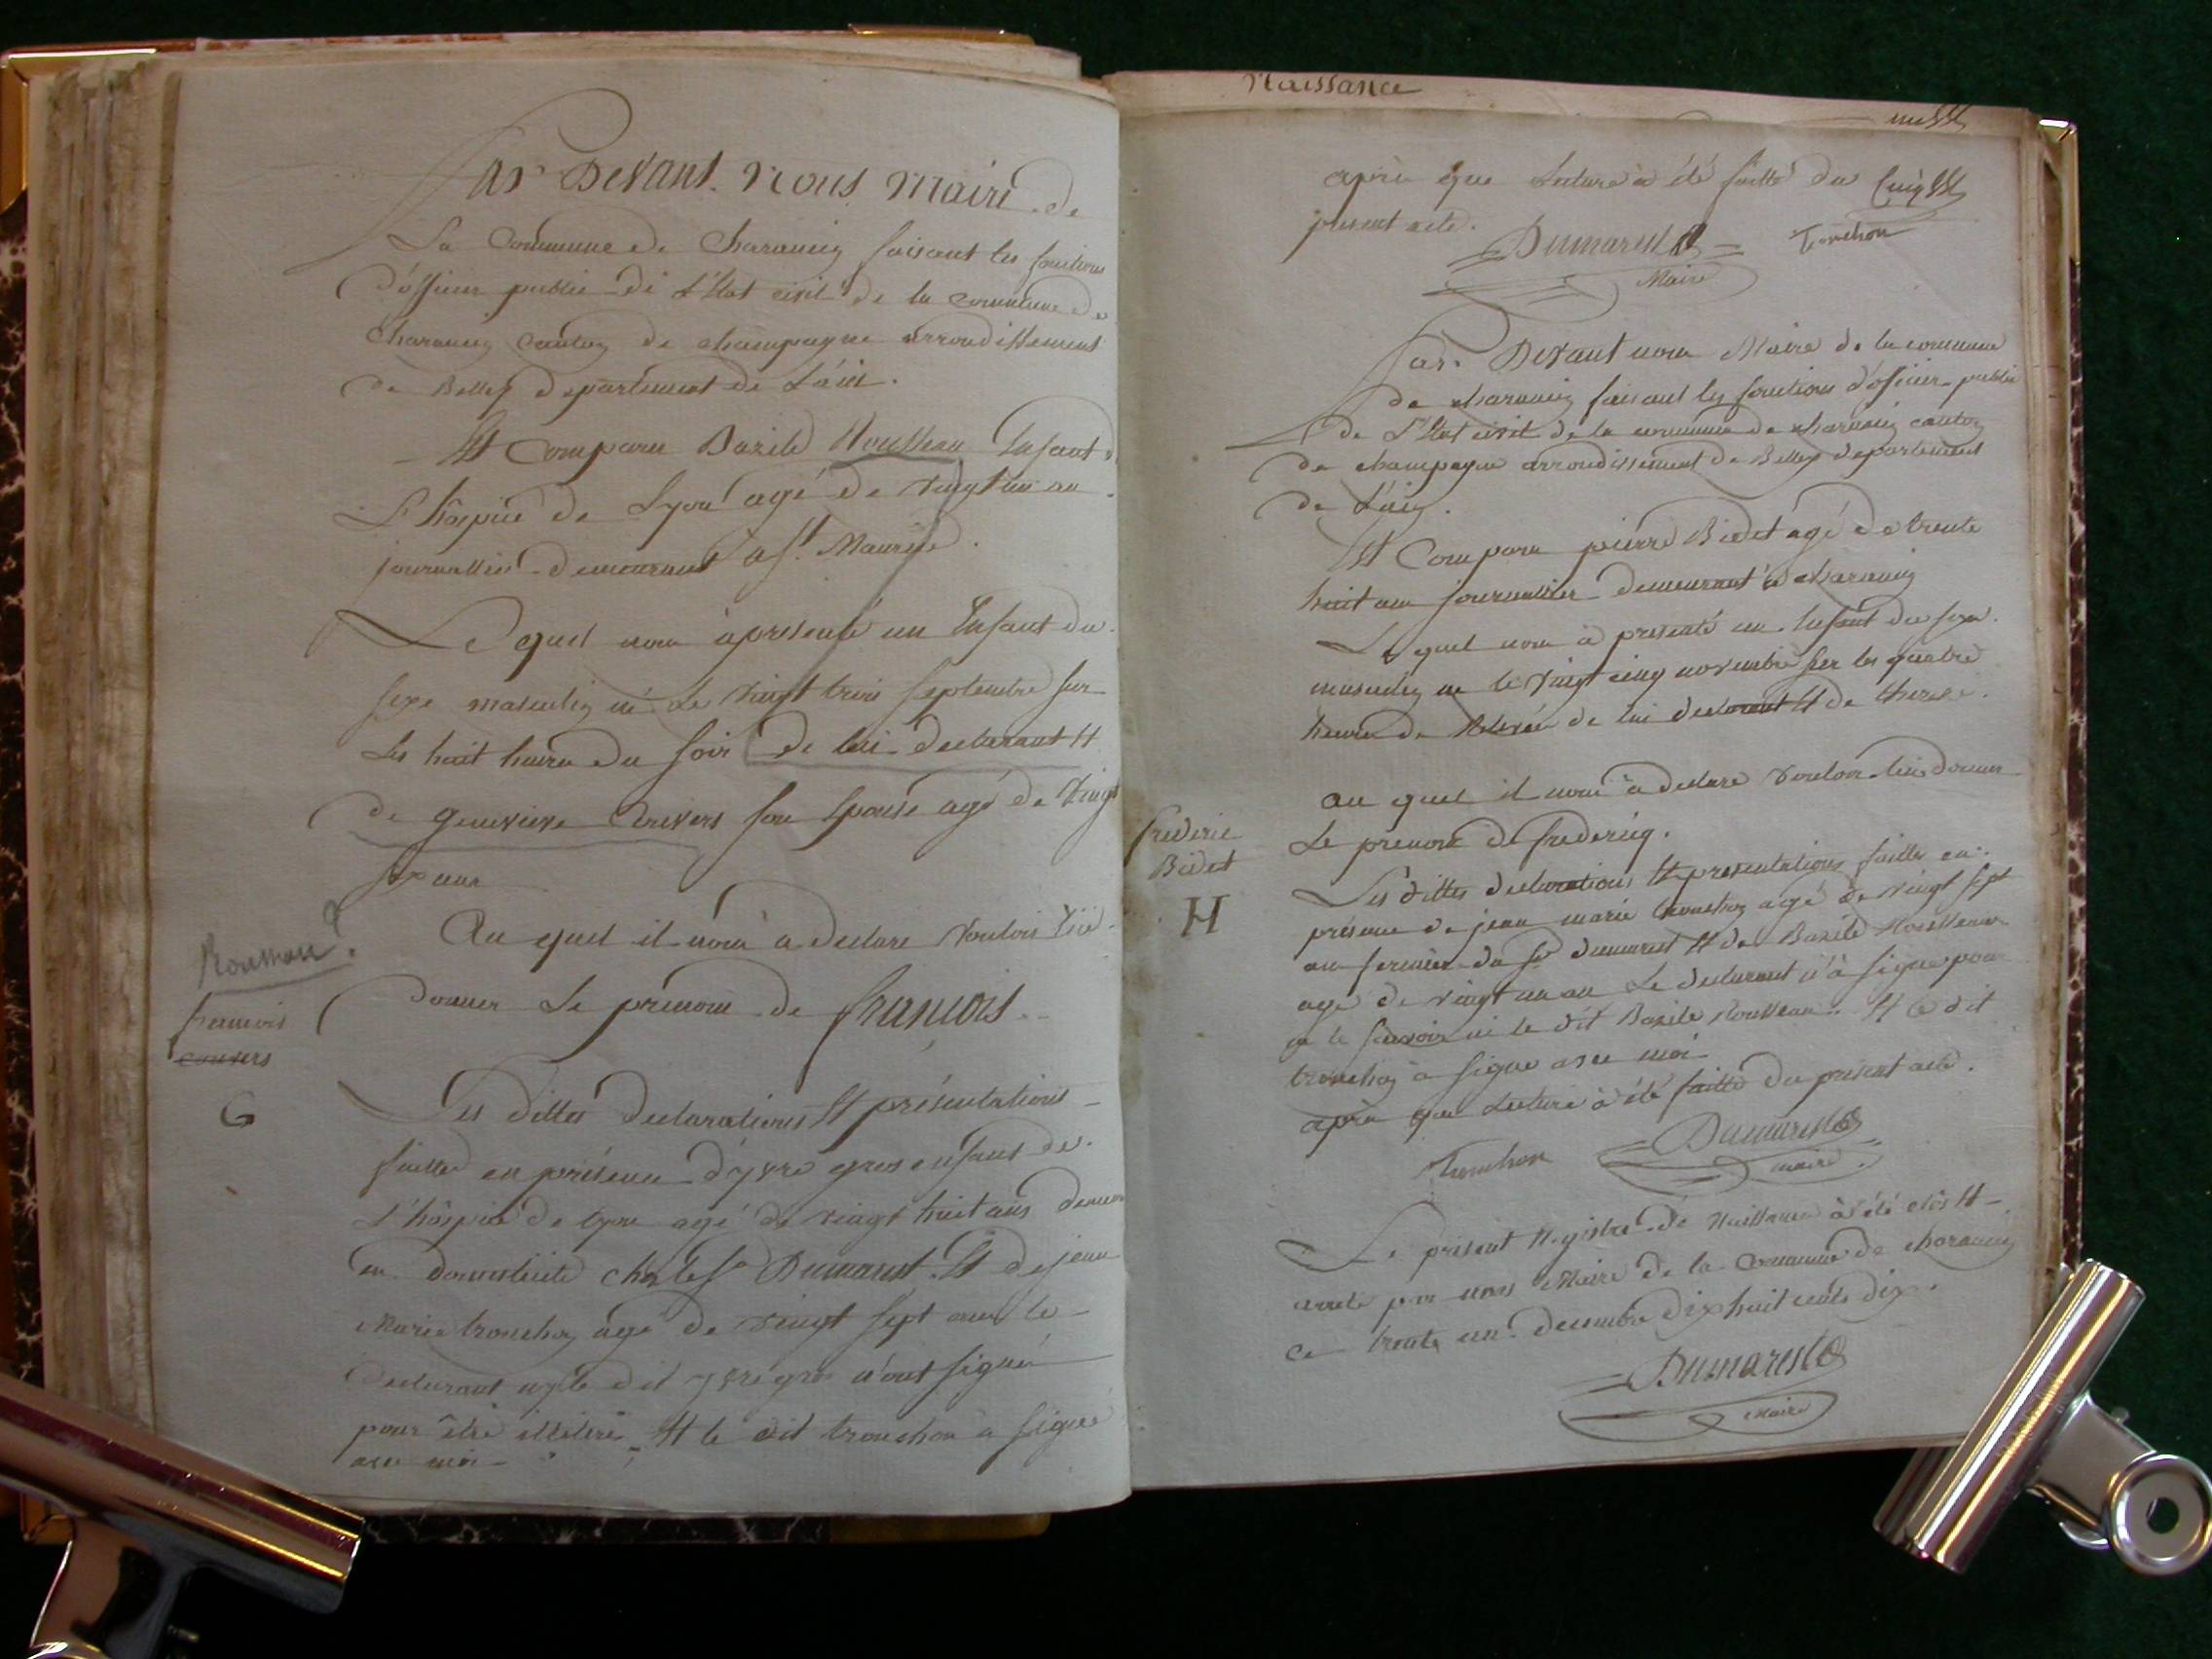 Par Devant Nous Maire de
La Commune de Charancin faisant les fonctions
d'officier public de L'Etat civil de la commune de
Charancin Canton de champagne arrondissement
de Belley departement de L'ain.
Est Comparu Bazile Rousseau Enfant de
L'hospice de Lyon agé de vingt un an
journallier demeurant a St. Maurice.
Le quel nous à presenté un Enfant du
sexe masculin né Le vingt trois septembre sur
Les huit heures du soir de lui declarant Et
de genevieve Convers son Epouse agé de vingt
six ans
Au quel il nous a declare vouloir
donner Le prenom de françois
Rousseau?
francois
convers
G
Les dittes declarations Et présentations
faittes en présence d'ysre gros enfant de
L'hospice de Lyon agé de vingt huit ans
en domesticite chez le sr Dumarest Et de jean
Marie tronchon agé de vingt sept ans le
declarant ny le dit ysre gros n'ont signé
pour être illitéré Et le dit tronchon a signé
avec moi
Naissance
après que Lecture à été faitte du
present acte.
Dumarest
Maire
Tronchon
Par Devant nous Maire de la commune
de charancin faisant les fonctions d'officier public
de L'Etat civil de la commune de charancin canton
de champagne arrondissement de Belley departement
de L'ain.
Est Comparu pierre Bidet agé de trente
huit ans journallier demeurant à charancin
Le quel nous à presenté un Enfant du sexe
masculin ne le vingt cinq novembre sur les quatre
heures de Relevée de lui declarant Et de therese
au quel il nous à declare vouloir lui donner
Le prenom de fredericq.
frederic
Bidet
H
Les dittes declarations Et presentations faittes en
présence de jean marie tronchon agé de vingt sept
ans fermier du sr dumarest Et de Bazile Rousseau
agé de vingt un an Le declarant n'à signé pour
ne le savoir ni le dit Bazile Rousseau. Et Le dit
tronchon à signe avec moi
après que Lecture à été faitte du present acte.
Tronchon
Dumarest
maire
Le présent Registre de Naissance à été clos Et
arreté par nous Maire de la Commune de charancin
ce trente un decembre dix huit cents dix.
Dumarest
Maire